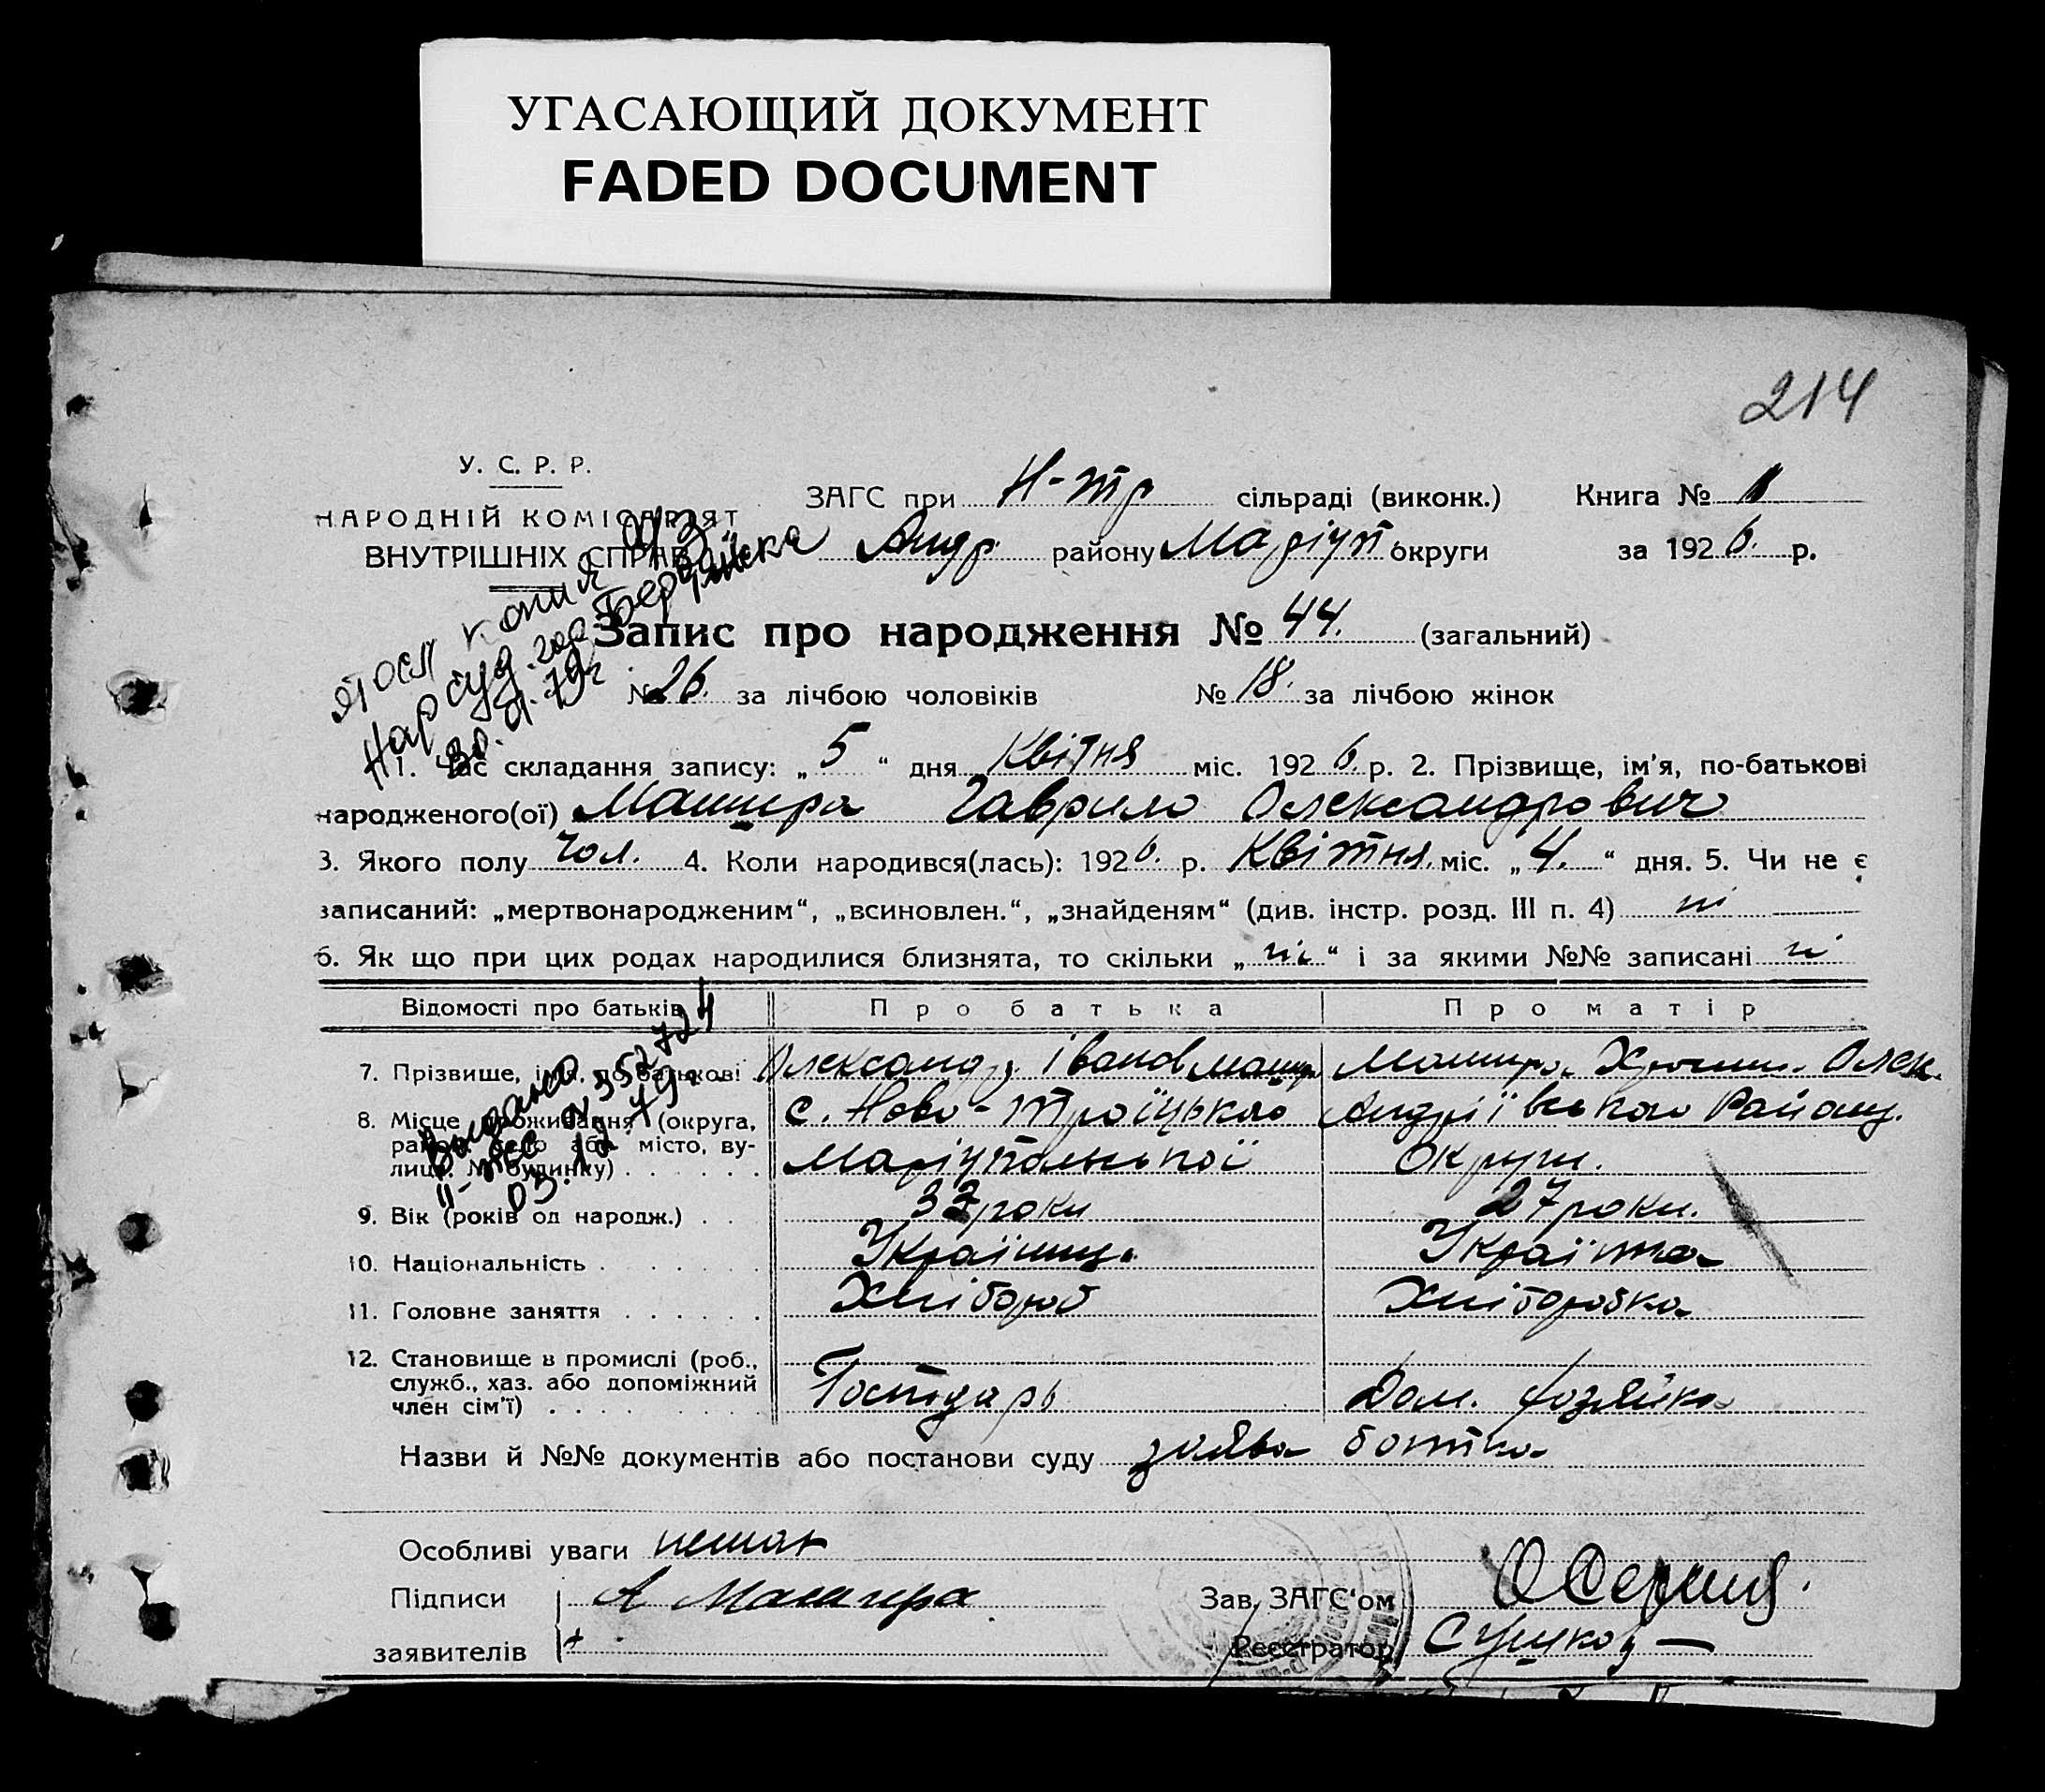 УГАСАЮЩИЙ ДОКУМЕНТ
FADED DOCUMENT
214
У. С. Р. Р.
НАРОДНІЙ КОМІСАРІЯТ
ВНУТРІШНІХ СПРАВ
ЗАГС при Н-тр сільраді (виконк.) Книга № 1
Андр. району Маріуп. округи за 1926. р.
копия
Нарсуд. гор. Бердянска
30. 01. 79г
Запис про народження № 44. (загальний)
№ 26. за лічбою чоловіків № 18. за лічбою жінок
1. Час складання запису: „5“ дня Квітня міс. 1926. р. 2. Прізвище, ім'я, по-батькові
народженого(ої) Машира Гаврило Олександрович
3. Якого полу чол. 4. Коли народився(лась): 1926. р. Квітня. міс. „4.“ дня. 5. Чи не є
записаний: „мертвонародженим“, „всиновлен.“, „знайденям“ (див. інстр. розд. III п. 4) ні
6. Як що при цих родах народилися близнята, то скільки „ні“ і за якими №№ записані ні
Відомості про батьків Про батька Про матір
7. Прізвище, ім'я, по-батькові Олександр Іванов Машир Машира Олек.
8. Місце проживання (округа, с. Ново-Троїцького Андріївського Району.
район, село або місто, ву-
лиця, № будинку) Маріупольської Округи.
Выдано
II-ЖС № 352724
03. 12. 79г.
9. Вік (років од народж.) 37 роки 27 роки.
10. Національність Українець Українка
11. Головне заняття Хлібороб Хліборобка
12. Становище в промислі (роб.,
служб., хаз. або допоміжний
член сім'ї) Господарь Дом. хозяйка
Назви й №№ документів або постанови суду заява батька
Особливі уваги немає
Підписи А Машира Зав. ЗАГС'ом
заявителів Реєстратор